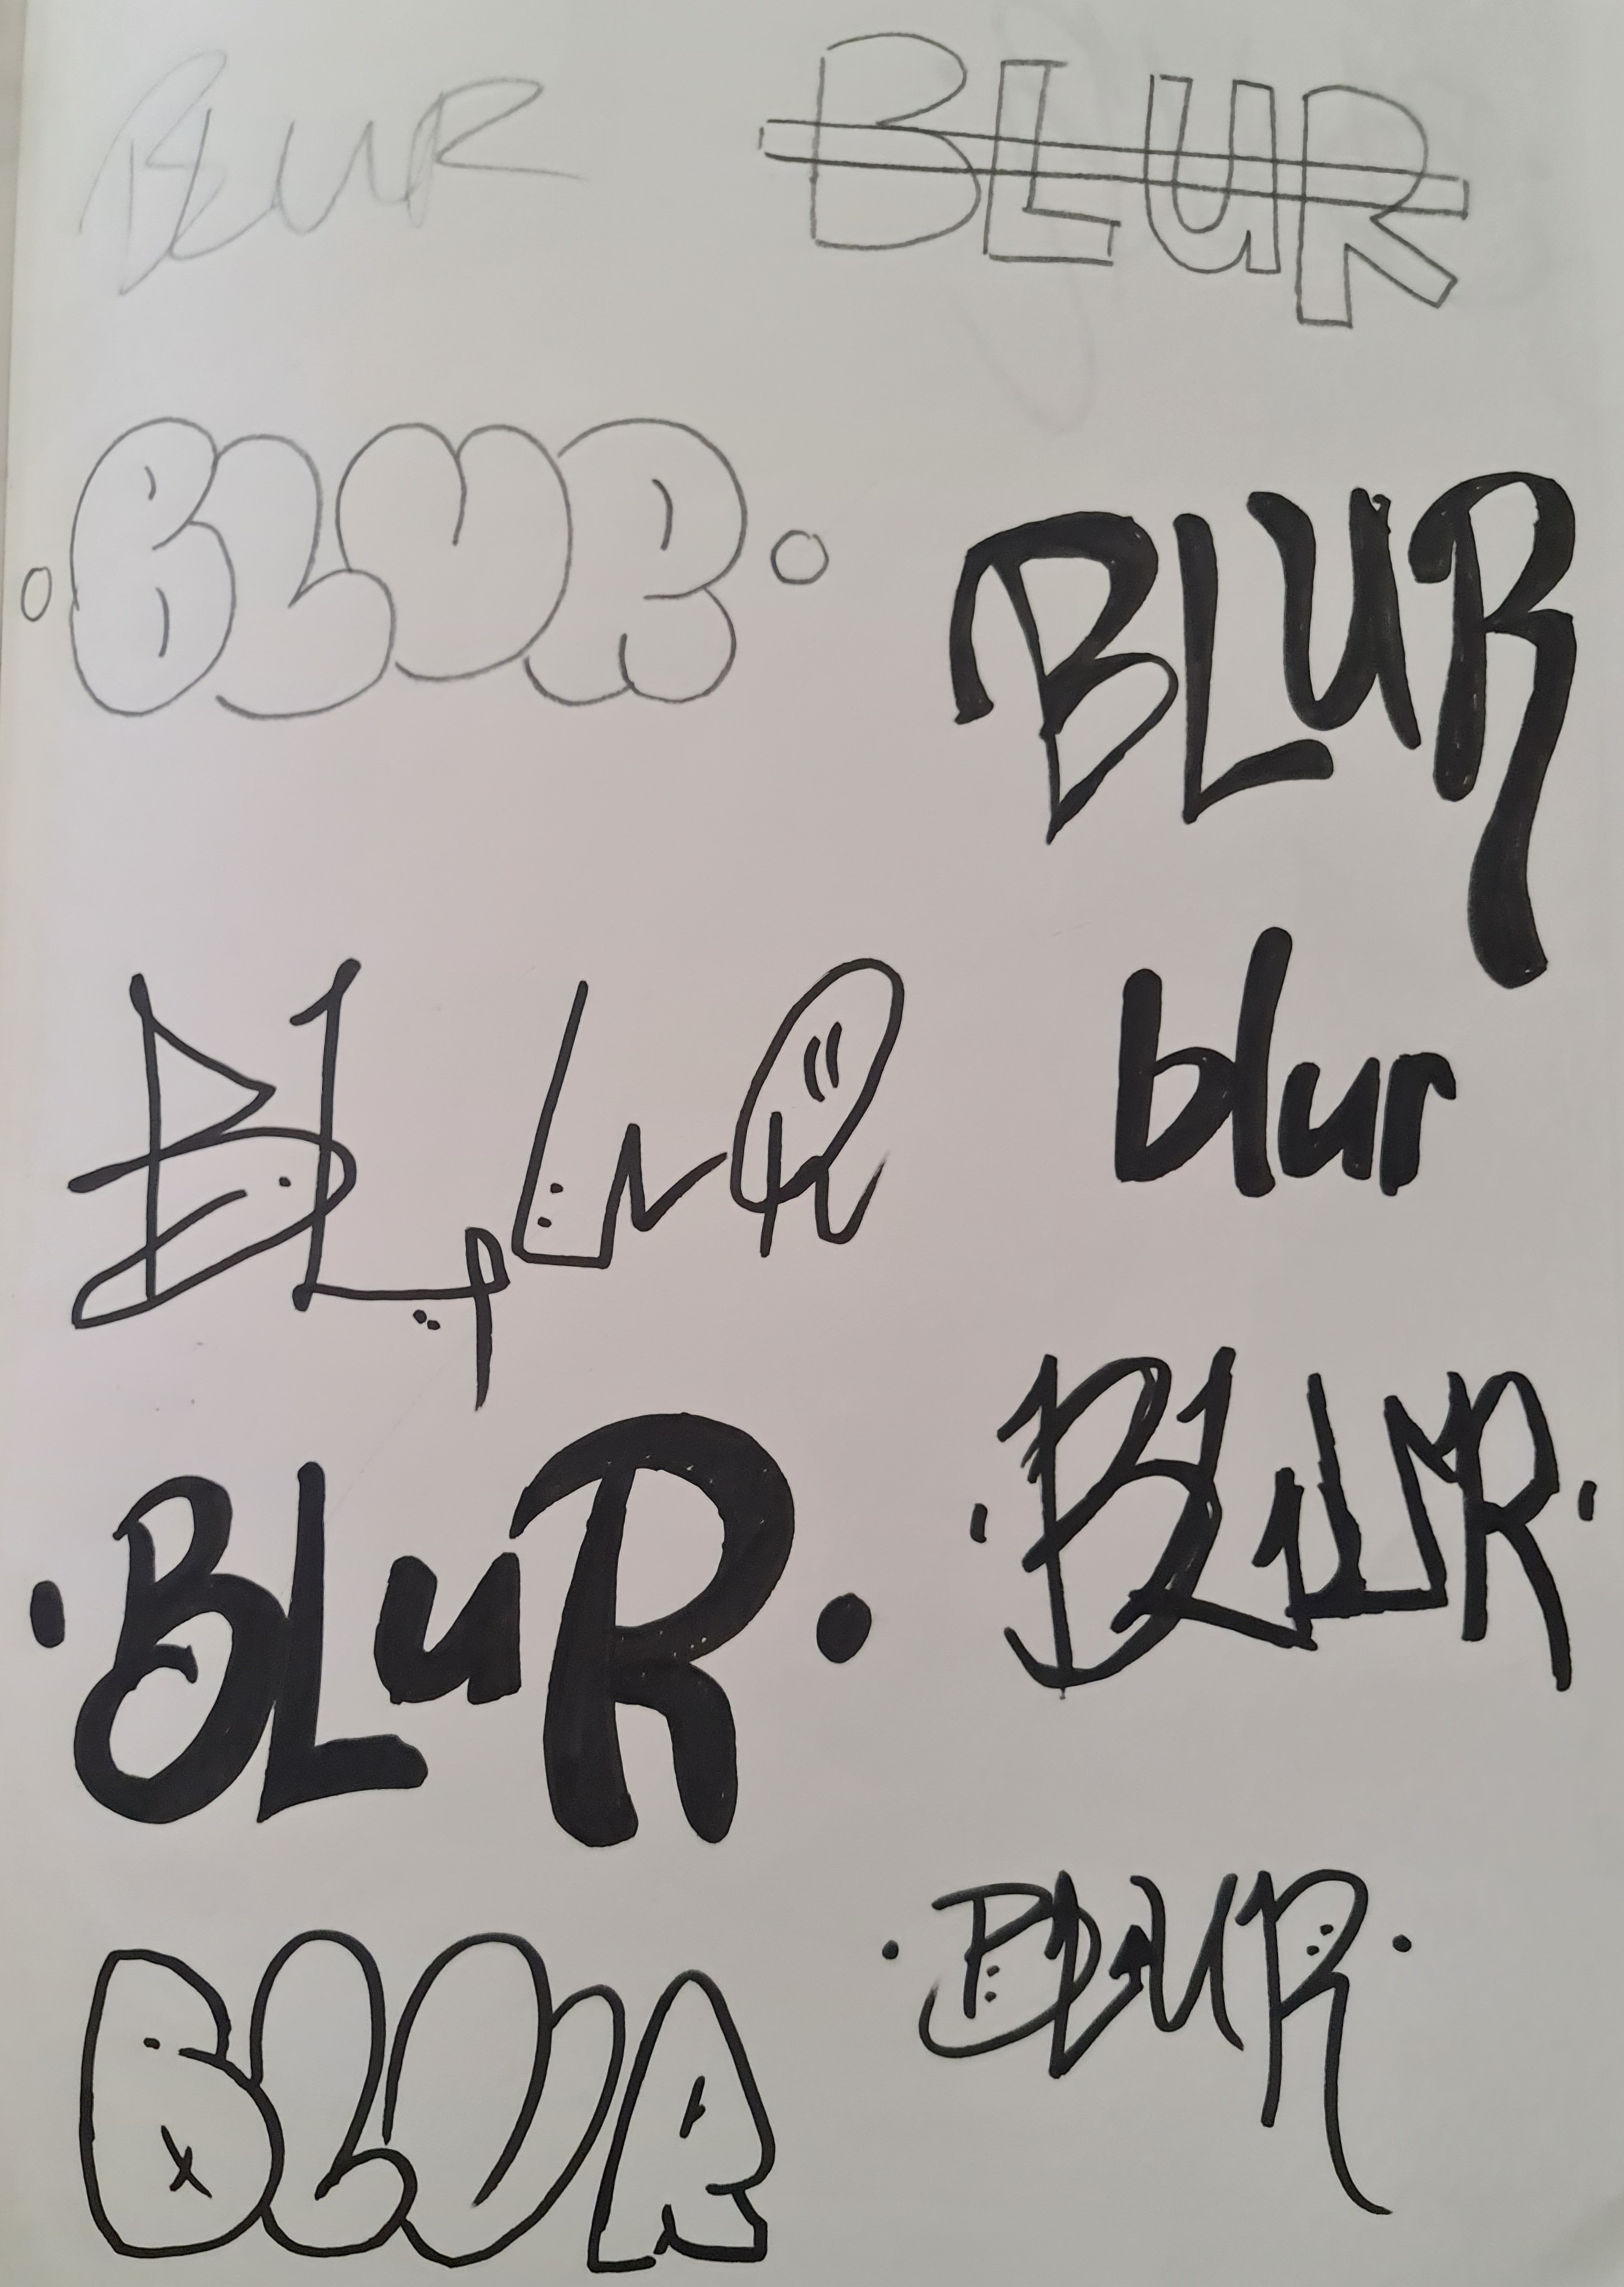 BLUR
BLUR
BLUR
BLUR
BLUR
blur
BLuR
BLUR
BLUR
BLUR